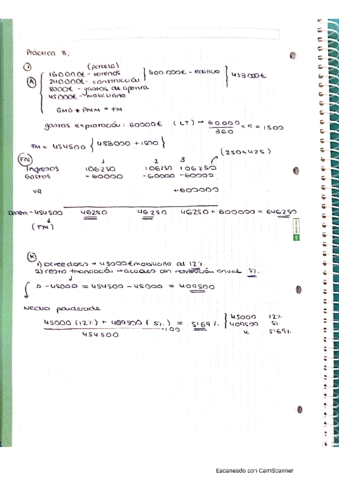 Práctica 8.
① (parcela)
Ⓐ 160000€ - terrenos
240000€ - construcción } 400.000€ - edificio } 453000€
8000€ - gastos de apertura
45000€ - mobiliario
+ PMM = FM
gastos explotación: 60000€ (CT) → 60000/360 × 9 = 1500
FM = 454500 { 453000 + 1500 }
FN 1 2 3 (250×425)
Ingresos 106250 106250 106250
Gastos -60000 -60000 -60000
VR +600000
-454500 46250 46250 46250 + 600000 = 646250
(FM)
Ⓚ
1) 45000€ mobiliario al 12%
2) resto 5%
454500 - 45000 = 409500
Media ponderada
45000 (12%) + 409500 (5%) / 454500 ·100 = 5'69% { 45000 12%
409500 5%
K 5'69%
Escaneado con CamScanner